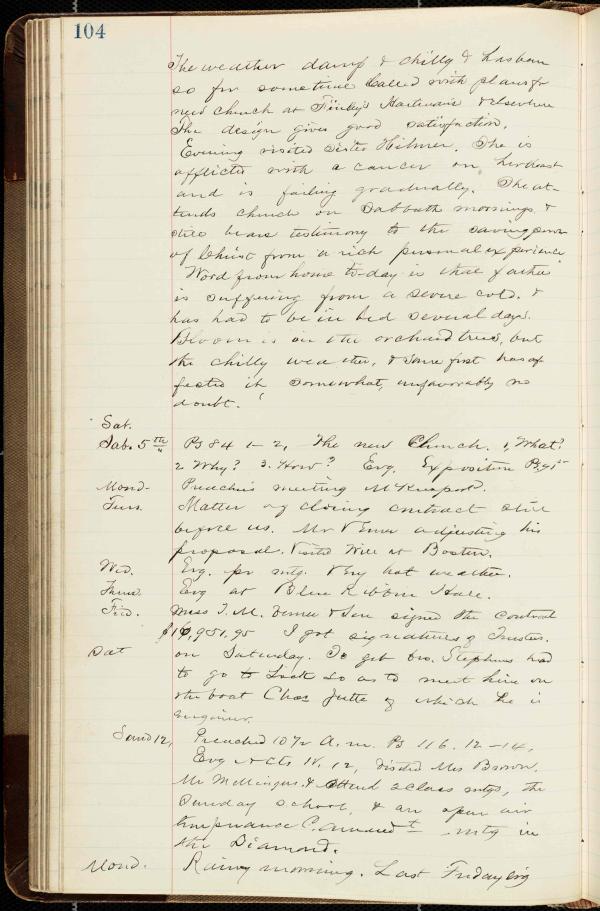 104
The weather damp & chilly & has been
so for some time Called with plans for
new church at Finley's Hardware & elsewhere
The design gives good satisfaction.
Evening visited Sister Hilmer. She is
afflicted with a cancer on her breast
and is failing gradually. She at-
tends church on Sabbath mornings &
still bears testimony to the saving power
of Christ from a rich personal experience
Word from home to-day is that father
is suffering from a severe cold. &
has had to be in bed several days.
Bloom is on the orchard trees, but
the chilly weather, & some frost has af
fected it somewhat, unfavorably no
doubt.
Sat.
Sab. 5th Ps 84 1-2, The new Church. 1, What?
2 Why? 3. How? Evg. Exposition Ps 91st
Mond- Preachers meeting McKeesport.
Tues. Matter of closing contract still
before us. Mr adjusting his
proposal. Visited Will at Boston.
Wed. Evg. pr mtg. Very hot weather.
Thurs. Evg at Blue Ribbon Hall.
Frid. Miss T. M. & Son signed the contract
$16,951.95 I got signatures of Trustees.
Sat on Saturday. To get bro. Stephens had
to go to Lock so as to meet him on
the boat Chas Jutte of which he is
engineer.
Sund 12, Preached 10 1/2 A.m. Ps 116. 12-14,
Evg Acts 12, Visited Mrs Brown.
Mr & attend 2 class mtgs, the
Sunday School, & an open air
temperance mtg in
the Diamond.
Mond. Rainy morning. Last Friday evg